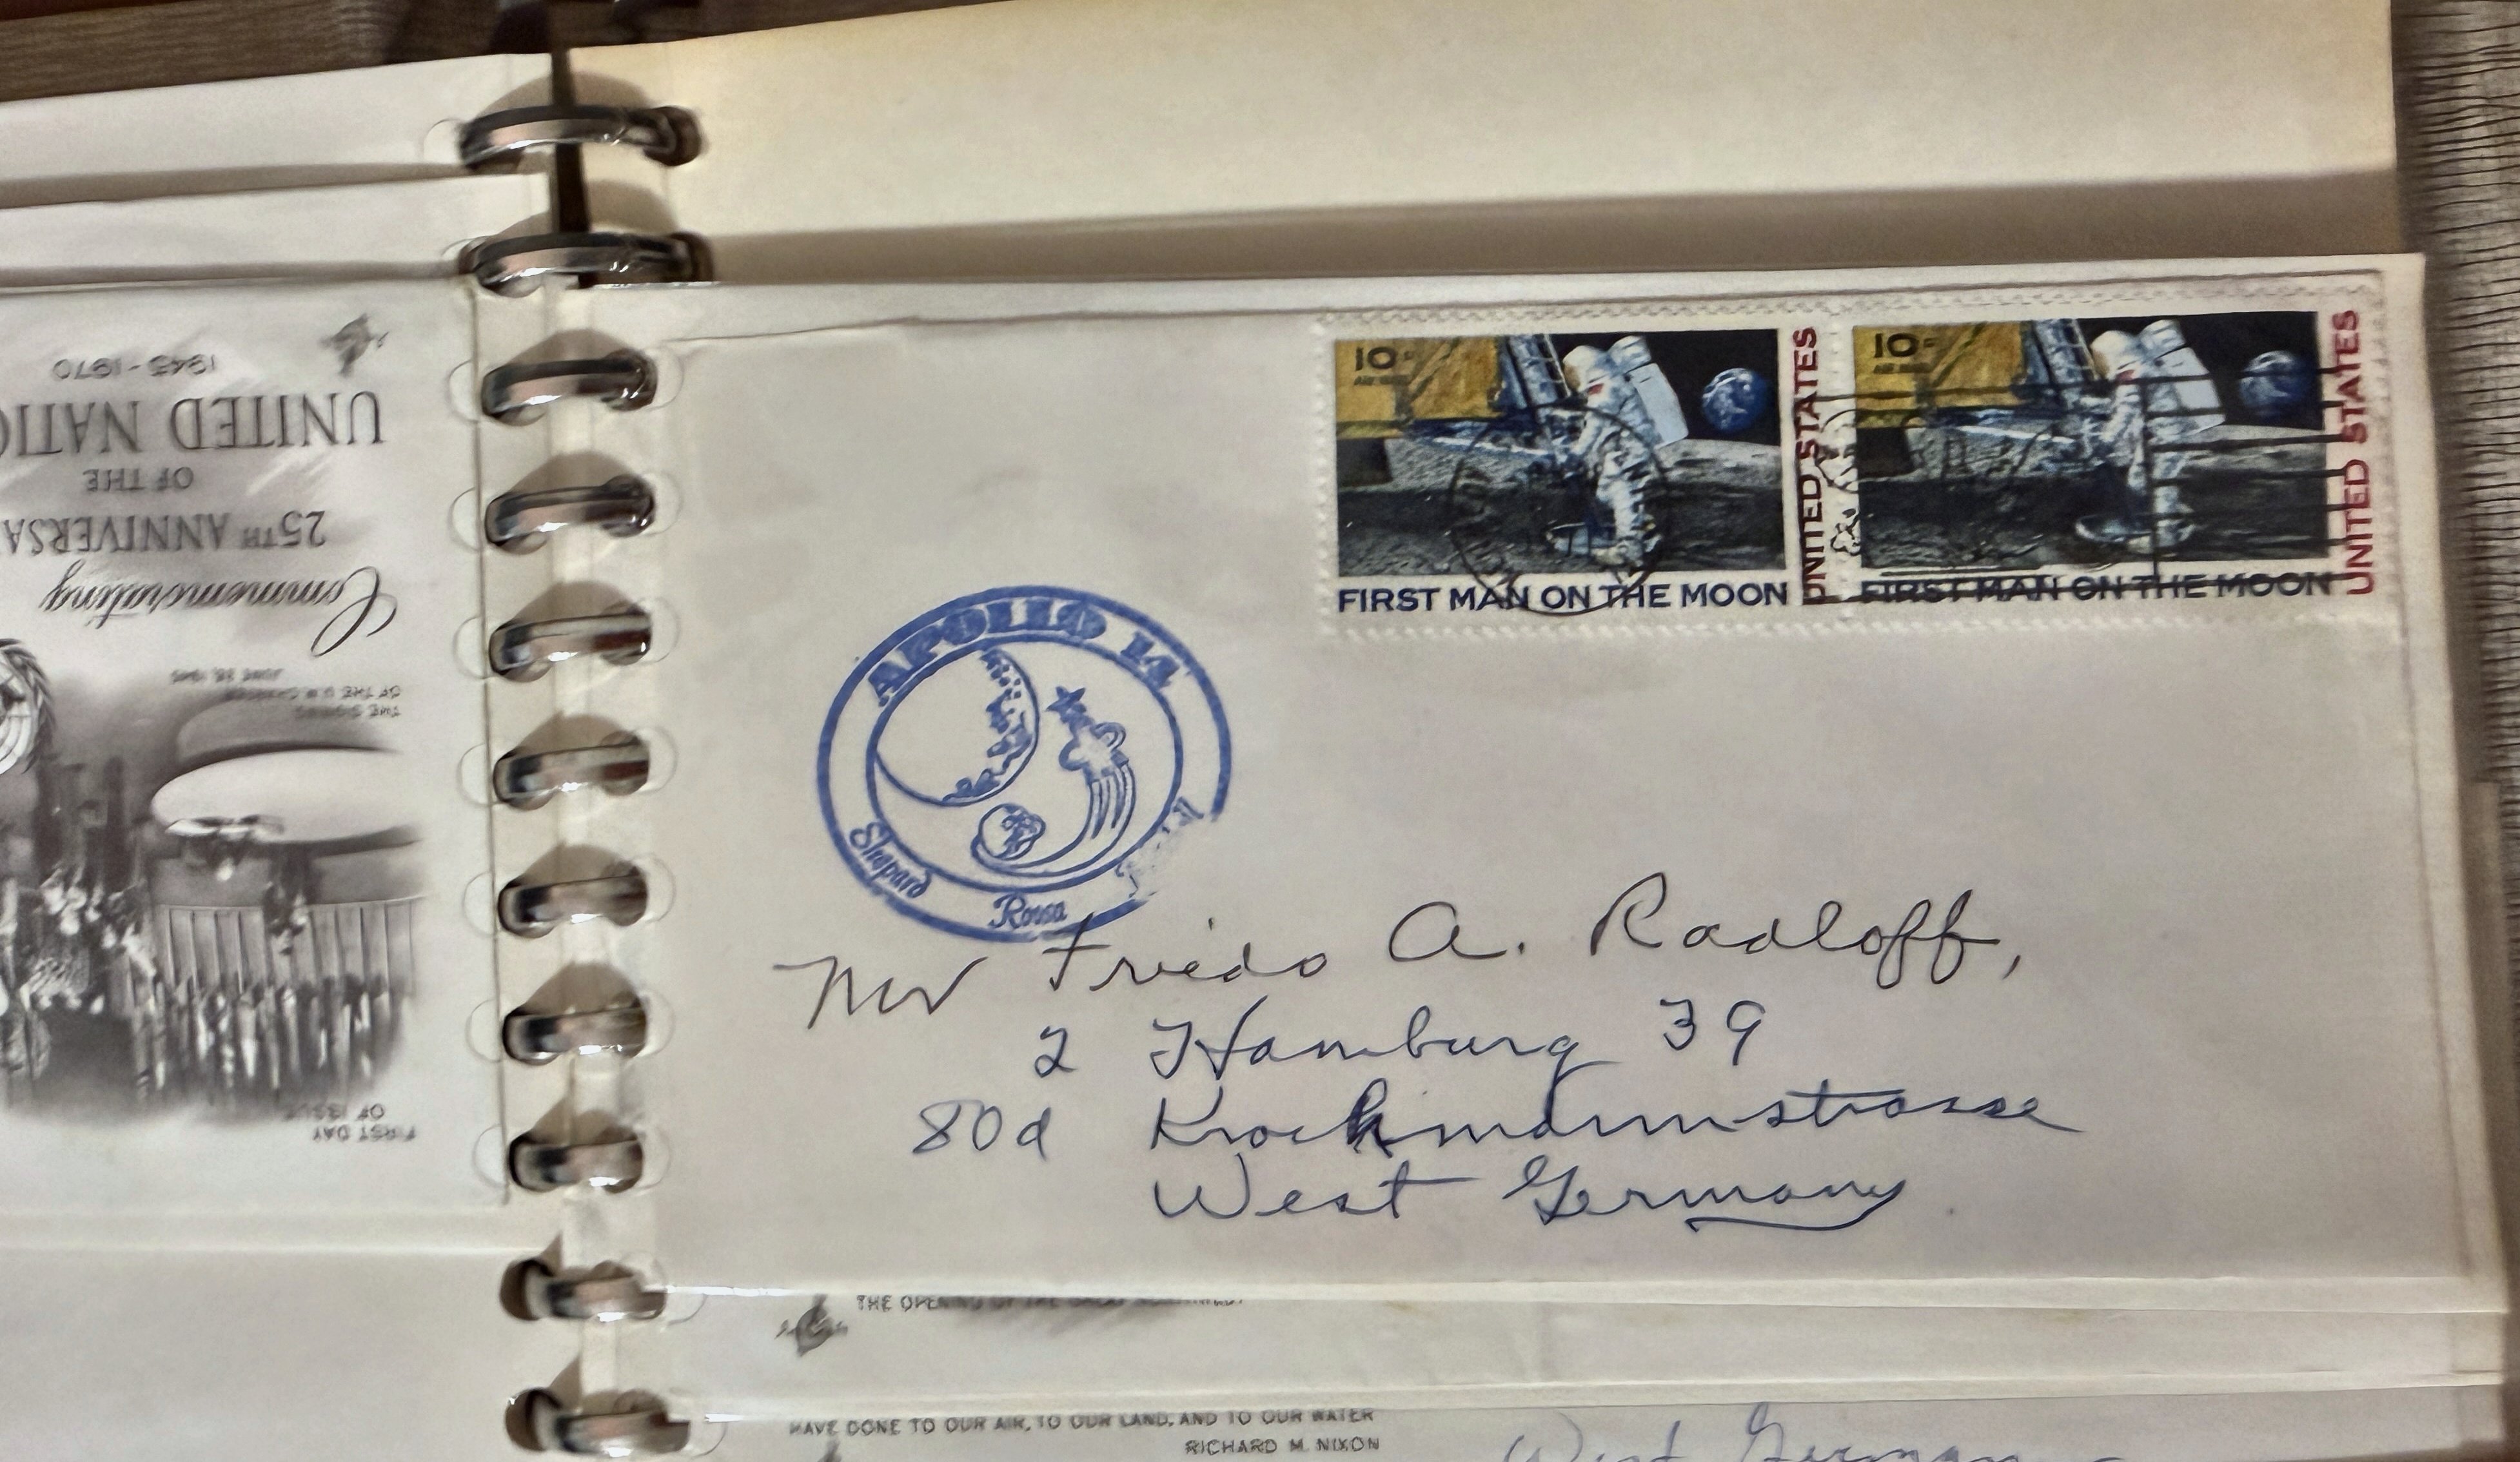 1945-1970
UNITED
OF THE
25TH
Commemorating
THE SIGNING
OF THE U.N. CHARTER
JUNE 26, 1945
FIRST DAY
OF ISSUE
10c
UNITED STATES
FIRST MAN ON THE MOON
10c
UNITED STATES
FIRST MAN ON THE MOON
APOLLO 14
Shepard
Roosa
Mr Friedo A. Radloff,
2 Hamburg 39
80d Krochmannstrasse
West Germany
THE OPENING OF THE
HAVE DONE TO OUR AIR, TO OUR LAND, AND TO OUR WATER
RICHARD M. NIXON
West